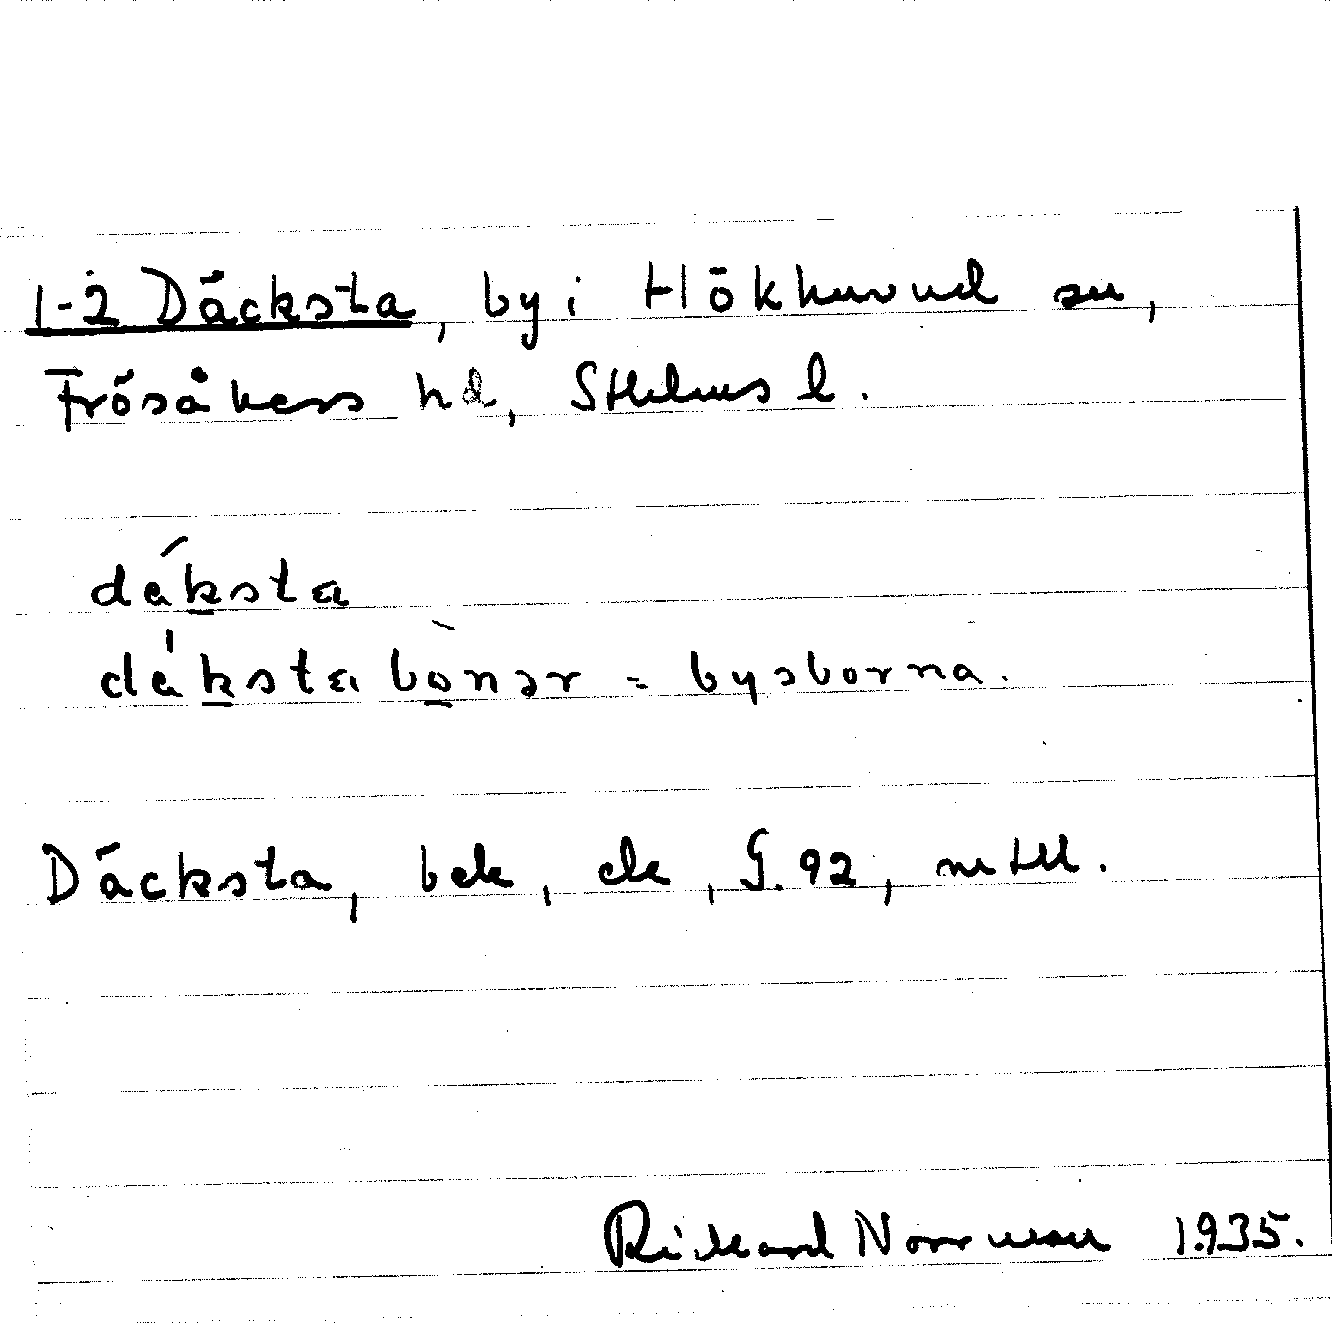 1-2 Däcksta, by i Hökhuvud sn,
Frösåkers hd, Sthlms l.
däksta
däkstabònər = bysborna.
Däcksta, bek, ek, G. 92, mtll.
Rickard Norrman 1935.